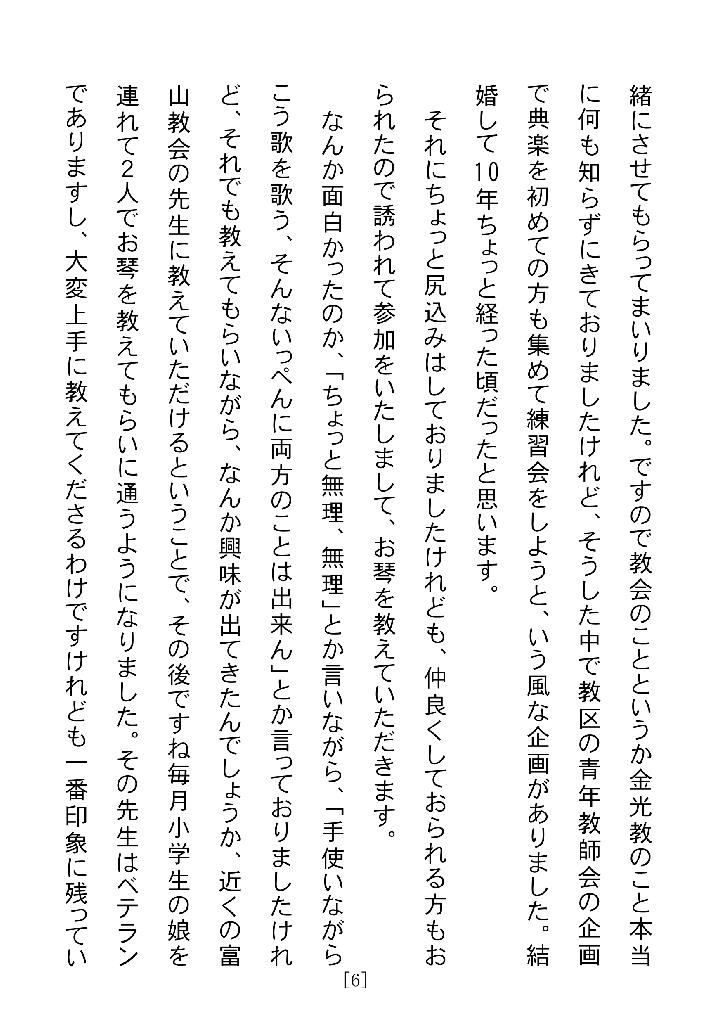 緒にさせてもらってまいりました。ですので教会のことというか金光教のこと本当
に何も知らずにきておりましたけれど、そうした中で教区の青年教師会の企画
で典楽を初めての方も集めて練習会をしようと、いう風な企画がありました。結
婚して10年ちょっと経った頃だったと思います。
それにちょっと尻込みはしておりましたけれども、仲良くしておられる方もお
られたので誘われて参加をいたしまして、お琴を教えていただきます。
なんか面白かったのか、「ちょっと無理、無理」とか言いながら、「手使いながら
こう歌を歌う、そんないっぺんに両方のことは出来ん」とか言っておりましたけれ
ど、それでも教えてもらいながら、なんか興味が出てきたんでしょうか、近くの富
山教会の先生に教えていただけるということで、その後ですね毎月小学生の娘を
連れて2人でお琴を教えてもらいに通うようになりました。その先生はベテラン
でありますし、大変上手に教えてくださるわけですけれども一番印象に残ってい
[6]